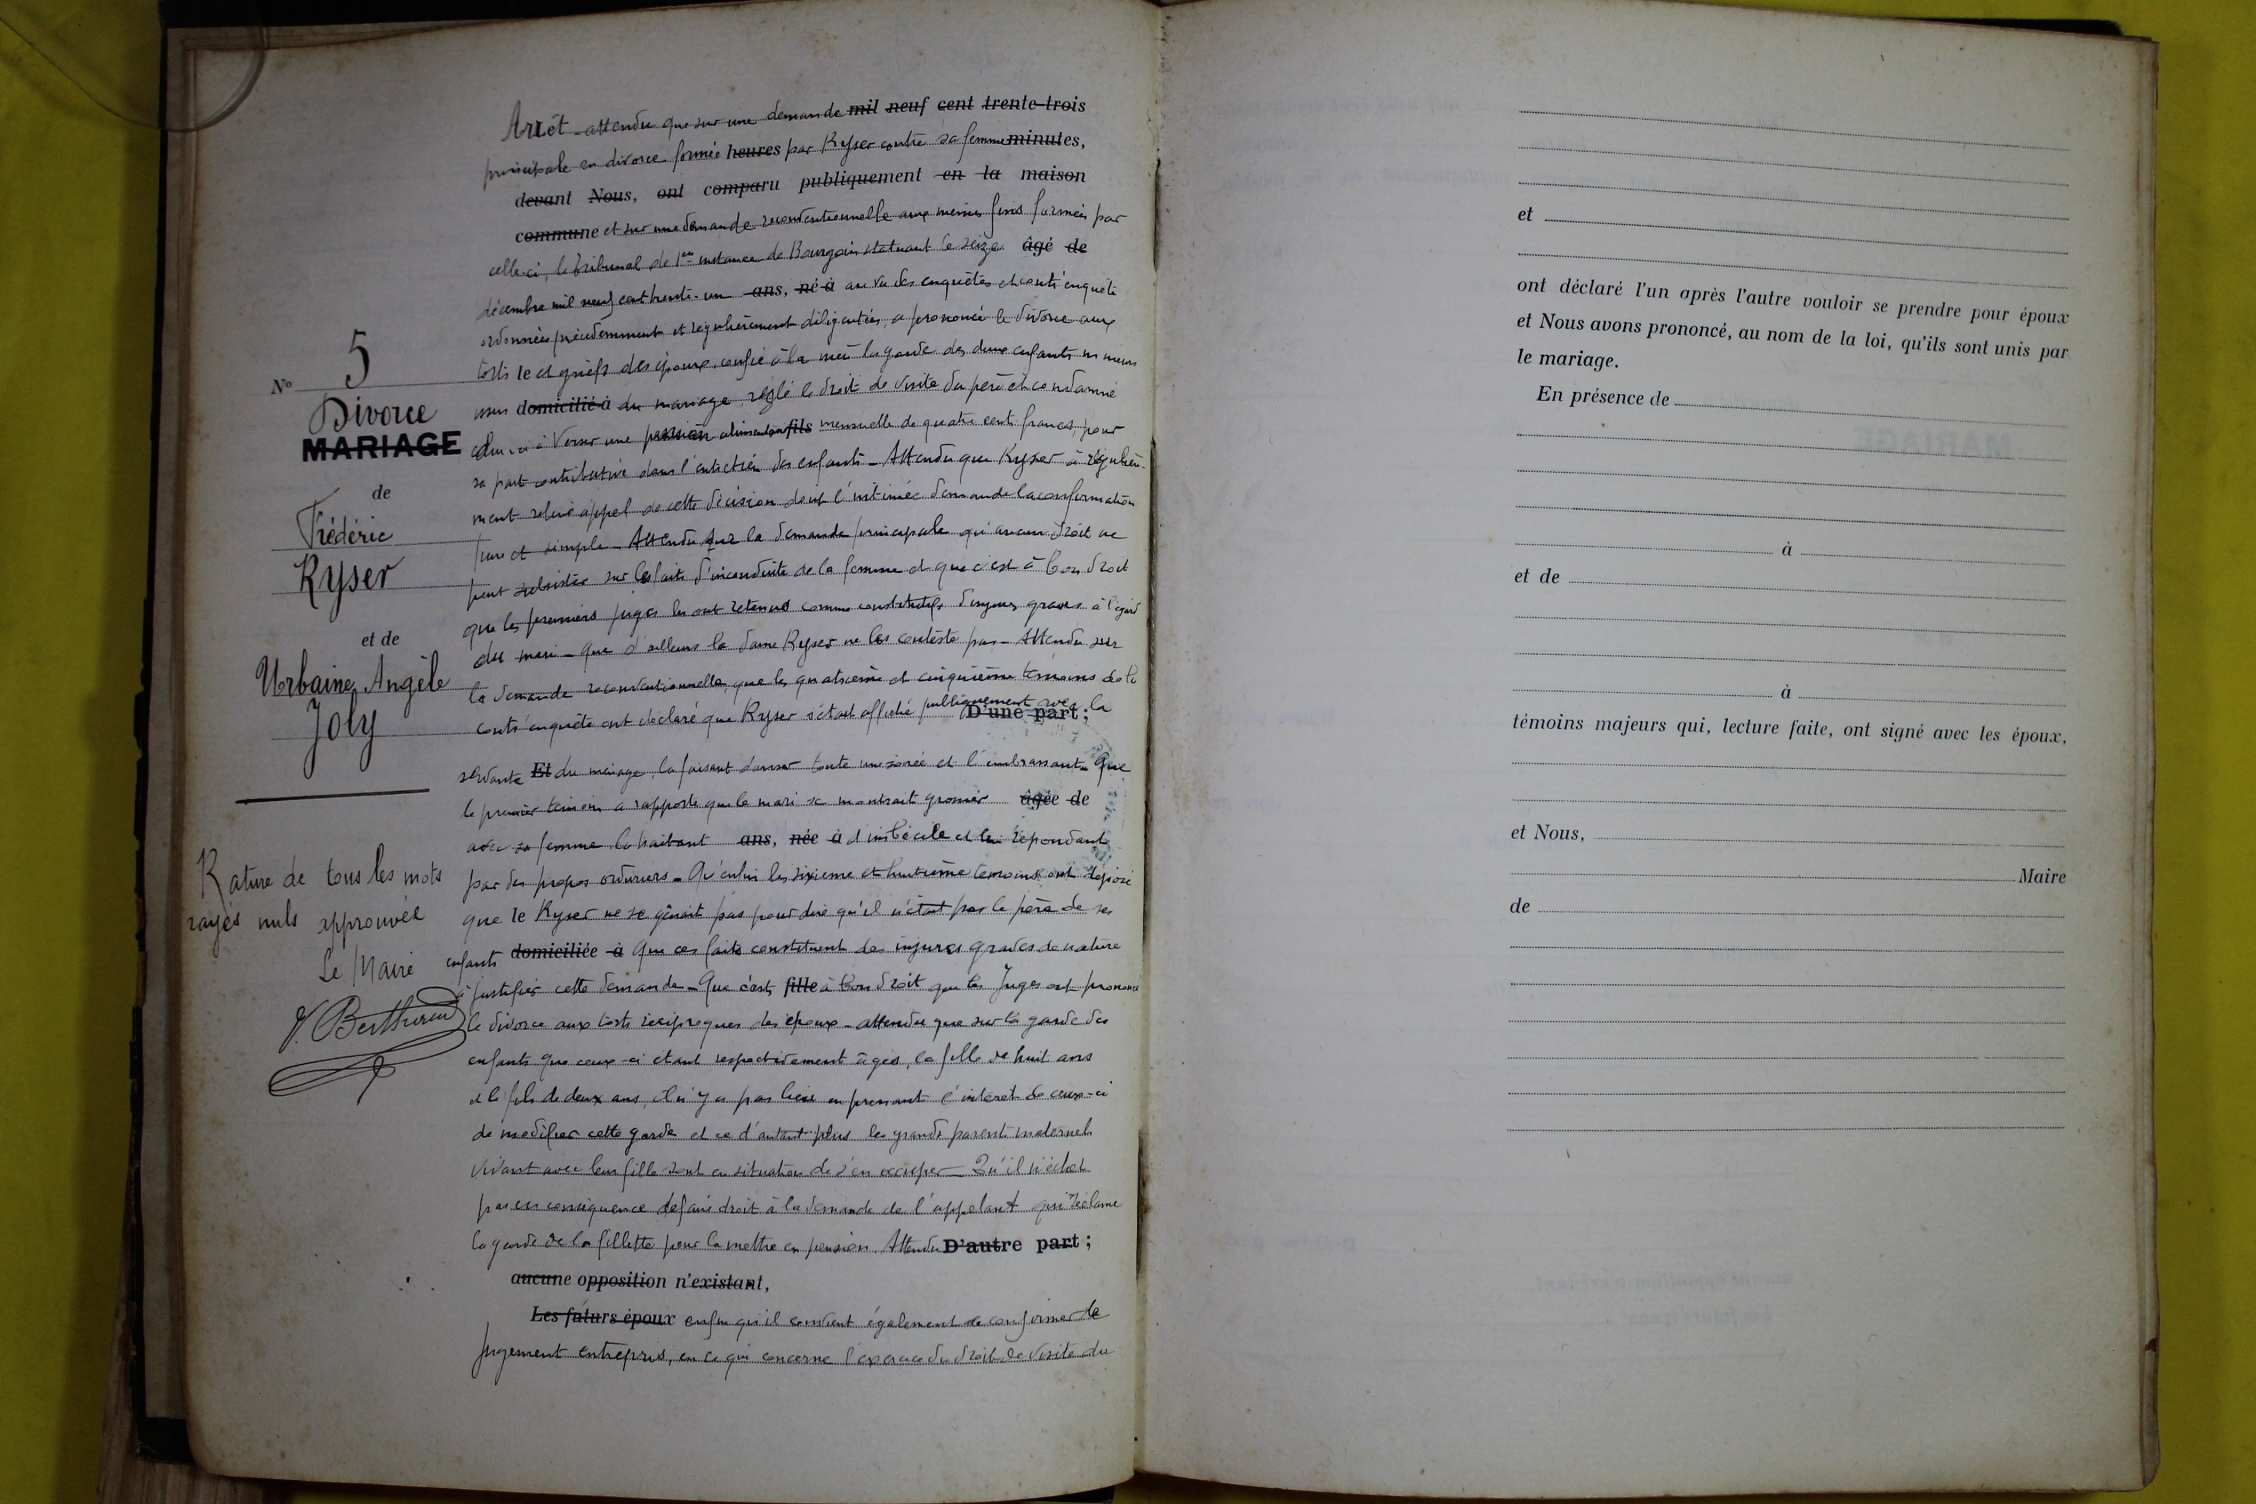 N° 5
Divorce
MARIAGE
de
Frédéric
Kyser
et de
Urbaine Angèle
Joly
Rature de tous les mots
rayés nuls approuvée
Le Maire
Arrêt - attendu que sur une demande mil neuf cent trente-trois
principale en divorce formée heures par Kyser contre sa femme minutes,
devant Nous, ont comparu publiquement en la maison
commune et sur une demande reconventionnelle aux mêmes fins formée par
celle-ci, le tribunal de 1ere instance de Bourgoin statuant le seize âgé de
décembre mil neuf cent trente-un ans, né à au vu des enquêtes et contr'enquête
ordonnées précédemment et régulièrement diligentées, a prononcé le divorce aux
torts le et griefs des époux, confié à la mère la garde des deux enfants mineurs
issus domicilié à du mariage, réglé le droit de visite du père et condamné
celui-ci à verser une pension alimentaire fils mensuelle de quatre cent francs, pour
sa part contributive dans l'entretien des enfants - Attendu que Kyser a régulière-
ment relevé appel de cette décision dont l'intimée demande la confirmation
pure et simple - Attendu que la demande principale qu'aucun droit ne
peut subsister sur les faits d'inconduite de la femme et que c'est à bon droit
que les premiers juges les ont retenus comme constitutifs d'injures graves à l'égard
du mari - que d'ailleurs la dame Kyser ne les conteste pas - Attendu sur
la demande reconventionnelle, que les quatrième et cinquième témoins de la
contr'enquête ont déclaré que Kyser s'était affiché publiquement avec la
D'une part ;
servante Et du ménage, la faisant danser toute une soirée et l'embrassant - Que
le premier témoin a rapporté que le mari se montrait grossier âgée de
avec sa femme la traitant ans, née à d'imbécile et lui répondant
par des propos orduriers - Qu'enfin les sixième et huitième témoins ont déposé
que le Kyser ne se gênait pas pour dire qu'il n'était pas le père de ses
enfants domiciliée à Que ces faits constituent des injures graves de nature
à justifier cette demande - Que c'est fille à bon droit que les Juges ont prononcé
le divorce aux torts réciproques des époux - attendu que sur la garde des
enfants que ceux-ci étant respectivement âgés, la fille de huit ans
et le fils de deux ans, il n'y a pas lieu en prenant l'intérêt de ceux-ci
de modifier cette garde et ce d'autant plus les grands parents maternels
vivant avec leur fille sont en situation de s'en occuper - Qu'il n'échet
pas en conséquence de faire droit à la demande de l'appelant qui réclame
la garde de la fillette pour la mettre en pension. Attendu D'autre part ;
aucune opposition n'existant,
Les futurs époux enfin qu'il convient également de confirmer le
Jugement entrepris, en ce qui concerne l'exercice du droit de visite du
et
ont déclaré l'un après l'autre vouloir se prendre pour époux
et Nous avons prononcé, au nom de la loi, qu'ils sont unis par
le mariage.
En présence de
à
et de
à
témoins majeurs qui, lecture faite, ont signé avec les époux,
et Nous,
Maire
de